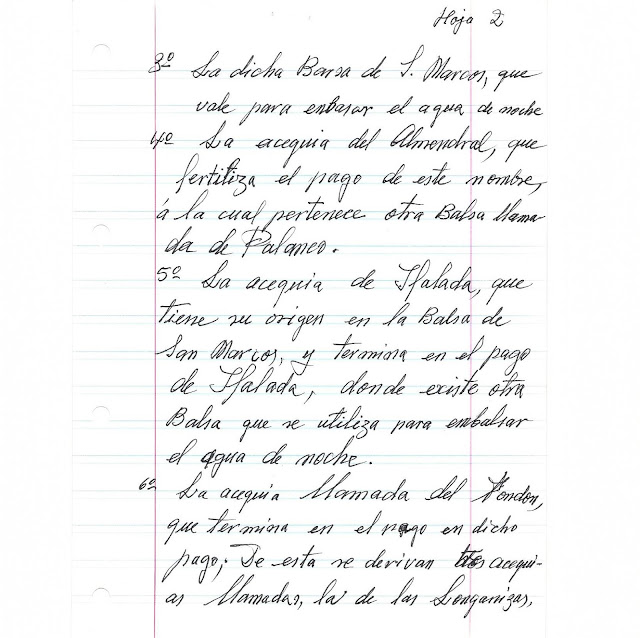 Hoja 2
3º La dicha Barsa de S. Marcos, que
vale para enbasar el agua de noche
4º La acequia del Almendral, que
fertiliza el pago de este nombre,
á la cual pertenece otra Balsa llama
da de Palanco.
5º La acequia de Jfalada, que
tiene su origen en la Balsa de
San Marcos, y termina en el pago
de Jfalada, donde existe otra
Balsa que se utiliza para embalsar
el agua de noche.
6º La acequia llamada del Fondon,
que termina en el pago en dicho
pago; De esta se derivan tres acequi-
as llamadas, la de las Longanizas,